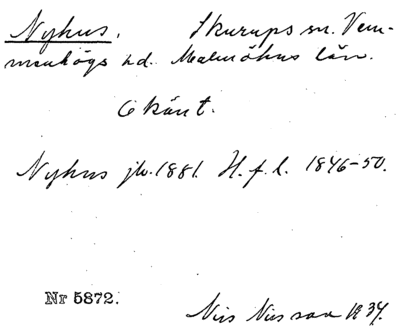 Nyhus. Skurups sn. Vem-
menhögs hd. Malmöhus län.
Okänt.
Nyhus jb. 1881. H. f. l. 1846-50.
Nr 5872.
Nils Nilsson 1934.